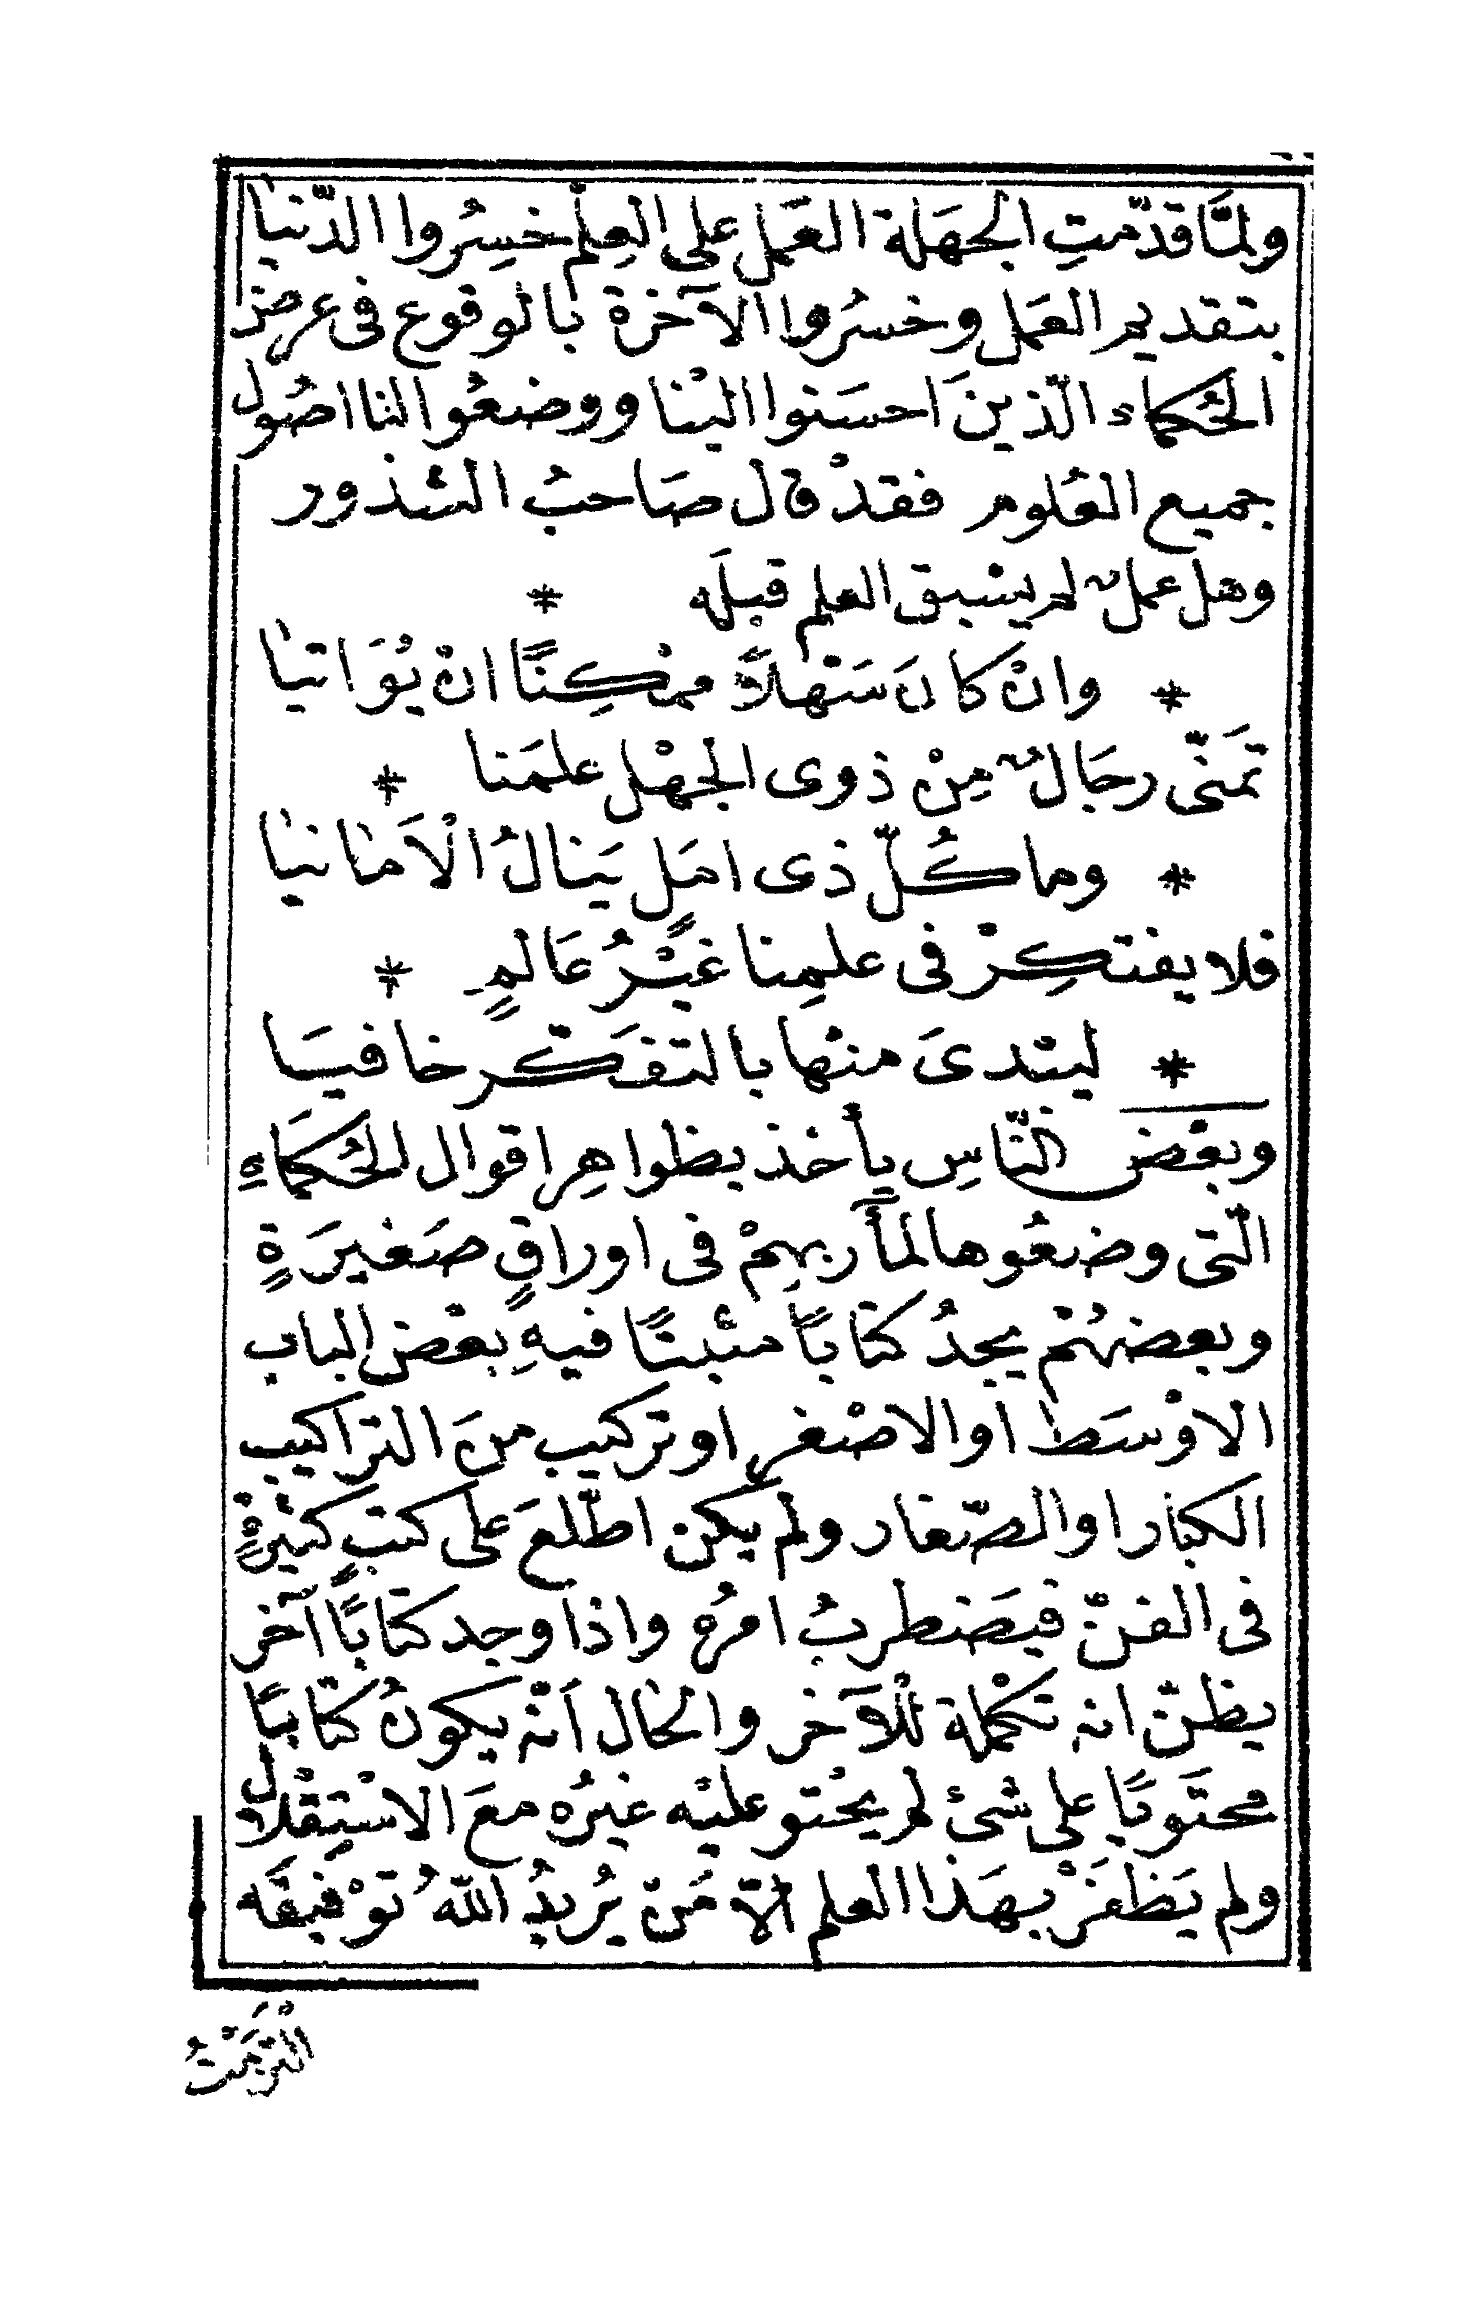 ولمَّا قدّمتِ الجهَلة العَمل على العِلْم خسِرُوا الدّنيا
بتقديم العَمل وخسرُوا الآخرة بالوقوع فى عرض
الحُكماء الّذينَ احسَنوا اليْنا ووضعُوا لنا اصُول
جميع العُلوم فقدْ قال صَاحبُ الشذور
وهل عملٌ لم يسْبق العلم قبلَه *
* وانْ كانَ سَهْلاً ممْكِنًا انْ يُوَاتيا
تمَنّى رجَالٌ مِنْ ذوى الجهْل علمَنا *
* وما كُلّ ذى امَلٍ يَنالُ الْاَمانيا
فلا يفتكِرْ فى علمِنا غيْرُ عَالمٍ *
* ليبْدىَ منْها بالتفَكّر خافيَا
وبعْض النّاسِ يأخذ بظواهِر اقوال الحُكمَاءِ
الّتى وضعُوها لمأربهِمْ فى اوراقٍ صَغيرَةٍ
وبعضهُمْ يجدُ كتابًا مثبتًا فيهِ بعْض الباب
الاوْسَط او الاصْغر او تركيب منَ التراكيب
الكبار او الصّغار ولم يكن اطّلعَ على كتبٍ كثيرةٍ
فى الفنّ فيضطربُ امرُه واذا وجد كتابًا آخر
يظنّ انه تكْملة للْآخر والحال اَنّه يكونُ كتابًا
محتَويًا على شئ لم يحْتو عليْه غيرُه معَ الاسْتِقْلال
ولم يَظفَرْ بهَذا العلم اِلاّ مَنْ يُريدُ اللّهُ توْفيقَه
الْترَمْتُ